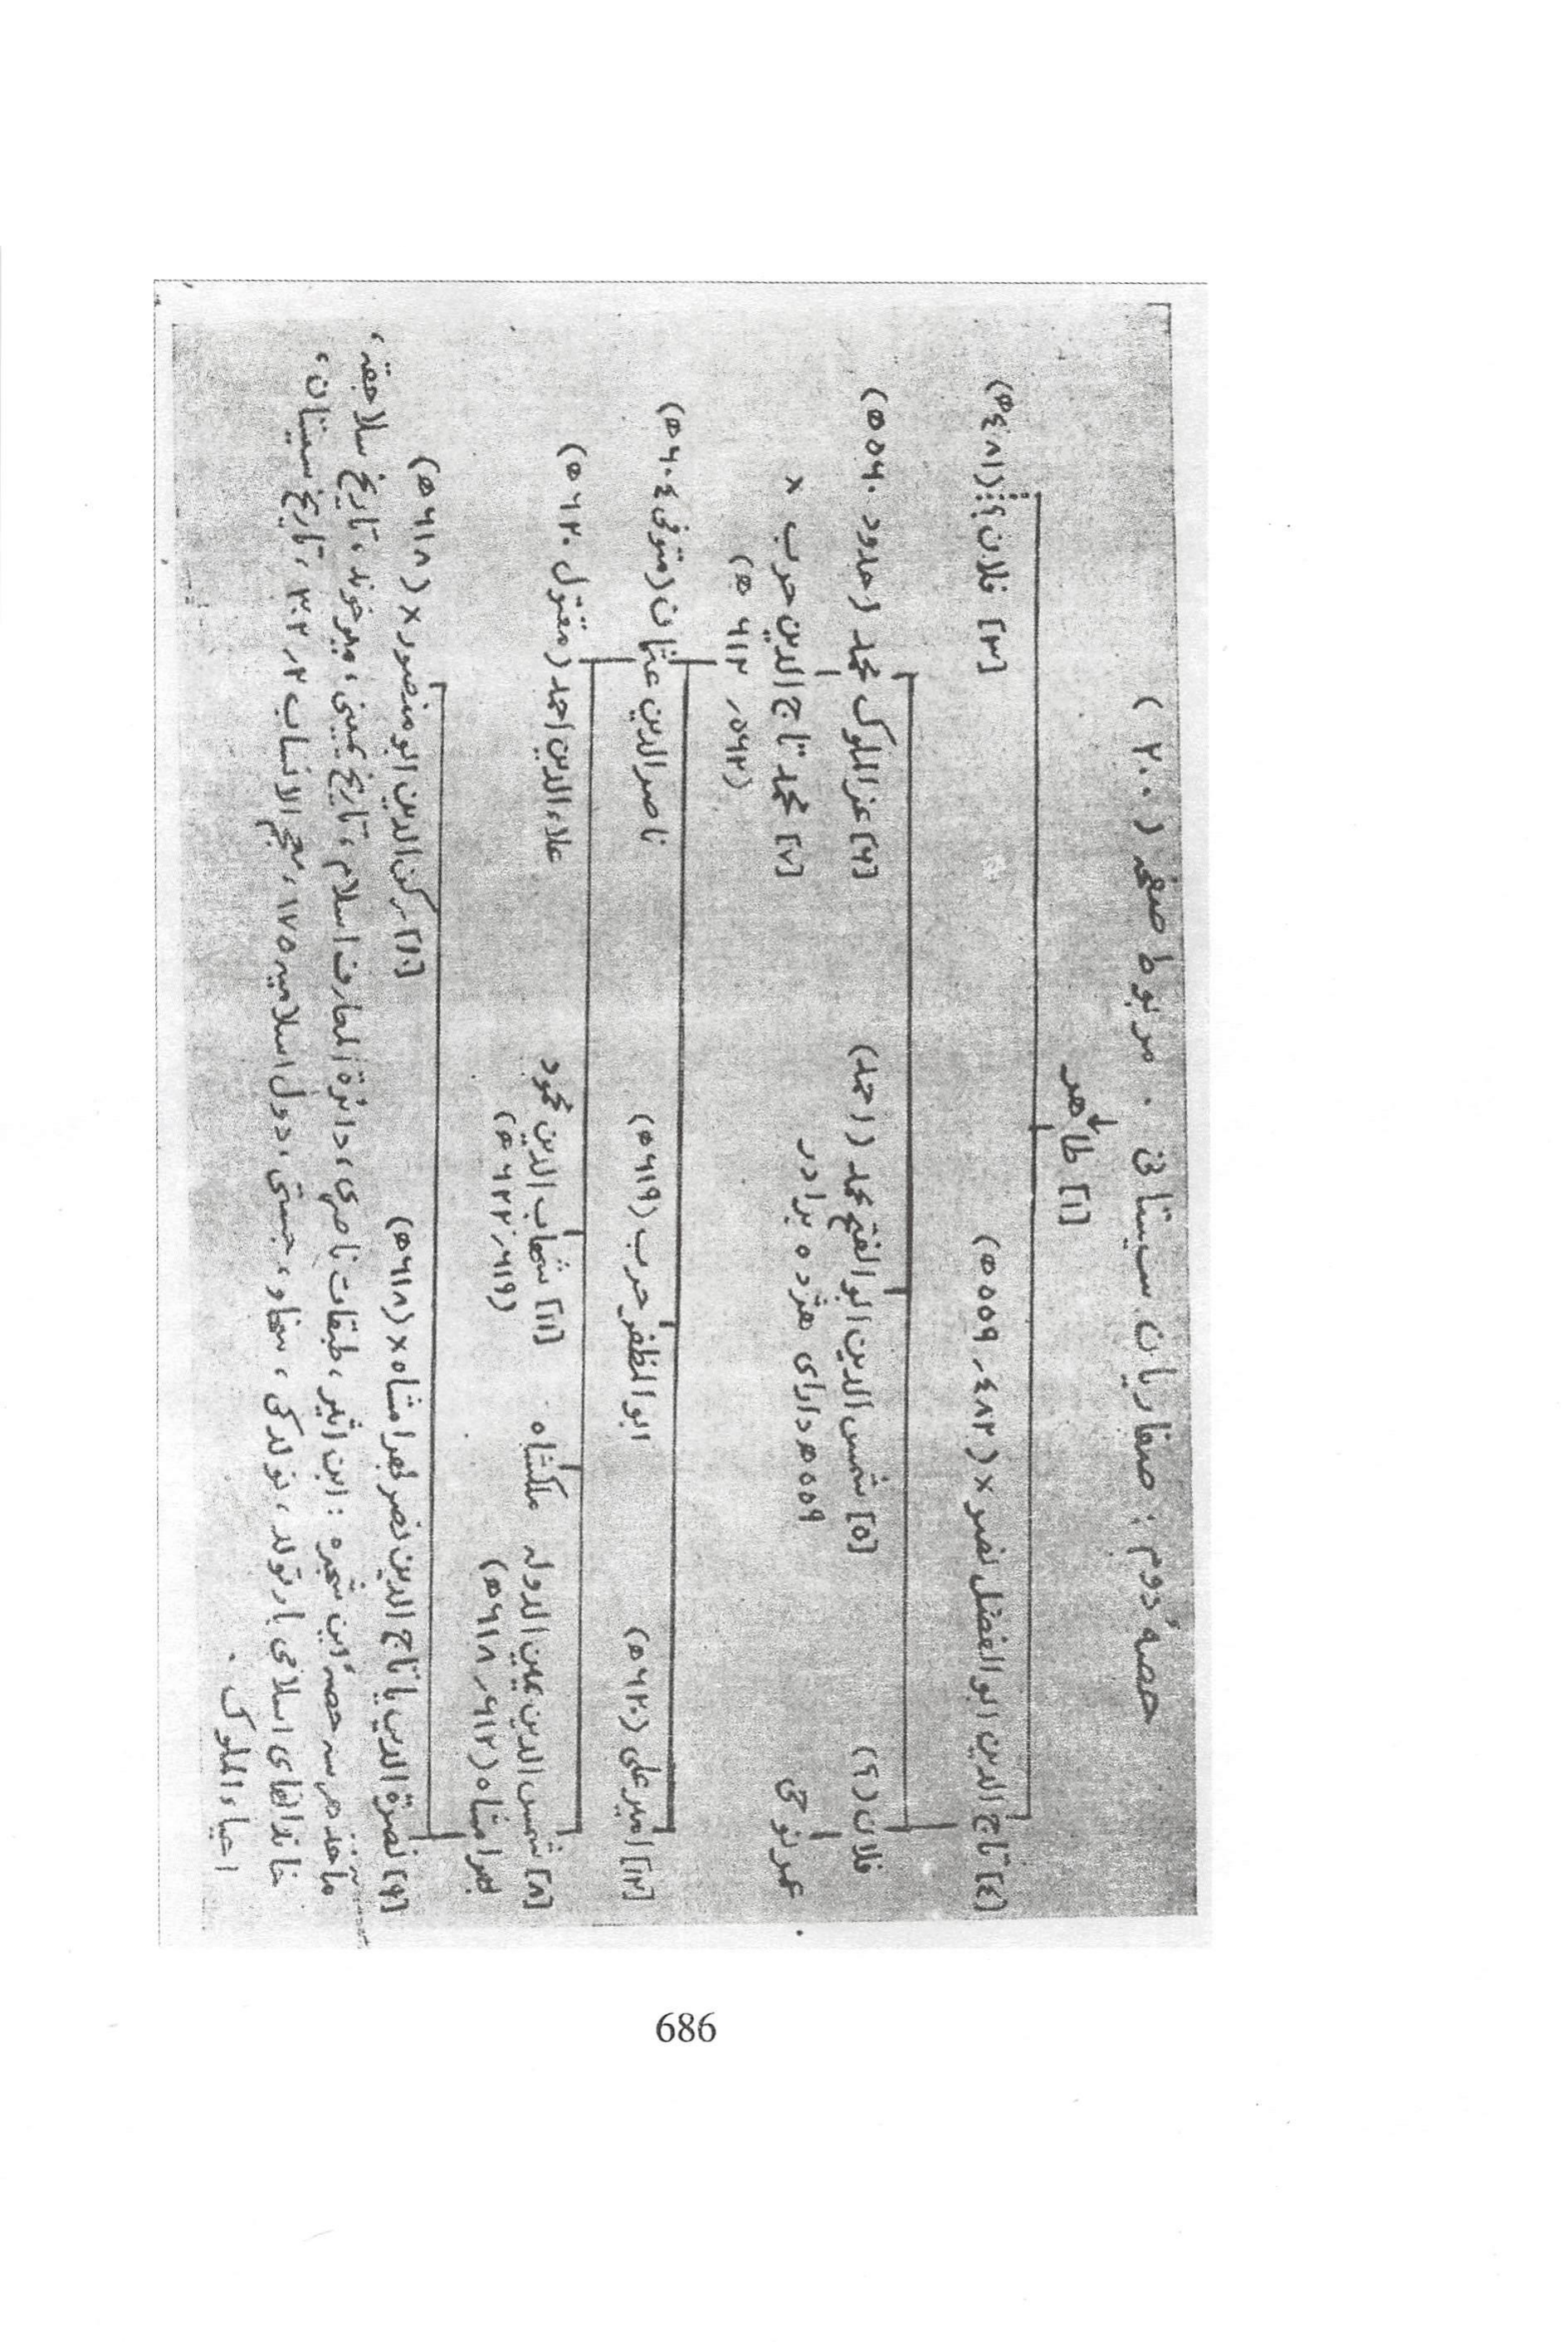 حصهٔ دوم : صفاریان سیستانی . مربوط صفحه (۲۰۰)
[۱] طاهر
[٤] تاج الدین ابوالفضل نصر × (٤۸۳ ر ۵۵۹ ه)
[۳] فلان؟ (٤۸۱ ه)
فلان (؟)
[۵] شمس الدین ابوالفتح محمد (احمد)
[۶] عزالملوک محمد (حدود ۵۶۰ ه)
عمر نوحی
۵۵۹ ه دارای هژده برادر
[۷] محمد تاج الدین حرب ×
(۵۶۲ ر ۶۱۲ ه)
[۱۲] امیر علی (۶۲۰ ه)
ابوالمظفر حرب (۶۱۹ ه)
ناصرالدین عثمان (متوفی ۶۰٤ ه)
[۸] شمس الدین یمین الدوله
بهرامشاه (۶۱۲ ر ۶۱۸ ه)
ملکشاه
[۱۱] شهاب الدین محمود
(۶۱۹ ر ۶۲۲ ه)
علاءالدین احمد (مقتول ۶۲۰ ه)
[۹] نصرة الدین یا تاج الدین نصر بهرامشاه × (۶۱۸ ه)
[۱۰] رکن الدین ابومنصور × (۶۱۸ ه)
مآخذ هر سه حصهٔ این شجره : ابن اثیر، طبقات ناصری، دائرة المعارف اسلام، تاریخ یمینی، میرخوند، تاریخ سلاجقه،
خاندانهای اسلامی بارتولد، نولدکی، سخاو، جستی، دول اسلامیه ۱۷۵، معجم الانساب ۲ ر ۳۰۳، تاریخ سیستان،
احیاء الملوک .
686